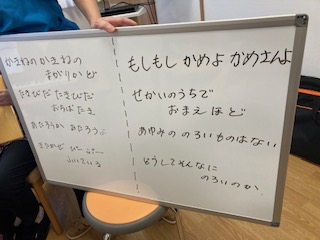 かきねの かきねの
まがりかど
たきびだ たきびだ
おちばたき
あたろうか あたろうよ
きたかぜ ぴーぷー
ふいている
もしもし かめよ かめさんよ
せかいのうちで
おまえほど
あゆみの のろいものはない
どうしてそんなに
のろいのか